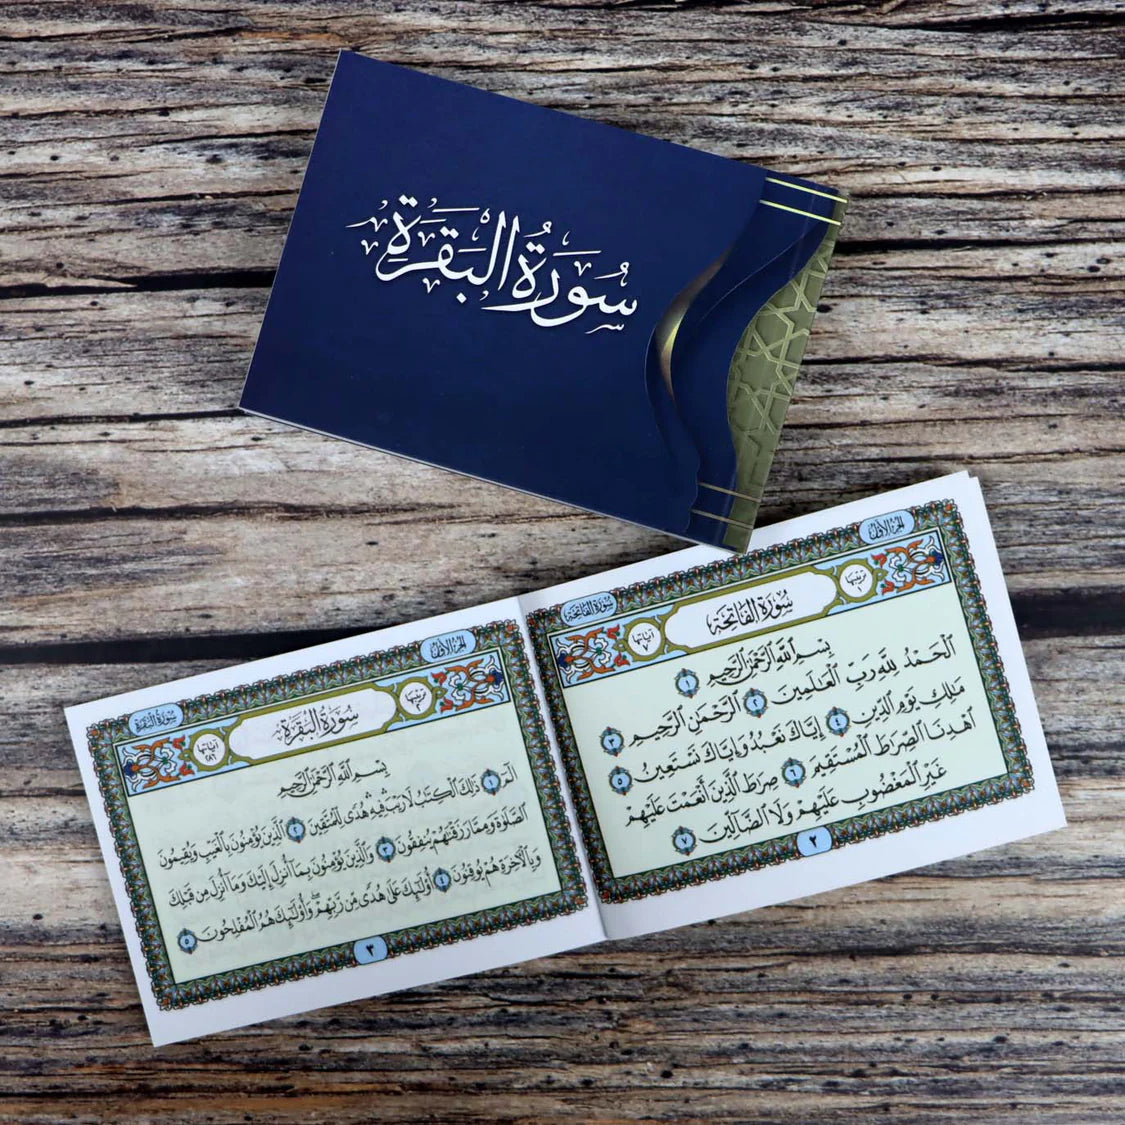 سُورَةُ البَقَرَةِ
الجزء الأول
سورة الفاتحة
ترتيبها ١
سُورَةُ الفَاتِحَة
آياتها ٧
بِسْمِ ٱللَّهِ ٱلرَّحْمَٰنِ ٱلرَّحِيمِ ١
ٱلْحَمْدُ لِلَّهِ رَبِّ ٱلْعَٰلَمِينَ ٢ ٱلرَّحْمَٰنِ ٱلرَّحِيمِ ٣
مَٰلِكِ يَوْمِ ٱلدِّينِ ٤ إِيَّاكَ نَعْبُدُ وَإِيَّاكَ نَسْتَعِينُ ٥
ٱهْدِنَا ٱلصِّرَٰطَ ٱلْمُسْتَقِيمَ ٦ صِرَٰطَ ٱلَّذِينَ أَنْعَمْتَ عَلَيْهِمْ
غَيْرِ ٱلْمَغْضُوبِ عَلَيْهِمْ وَلَا ٱلضَّآلِّينَ ٧
٢
الجزء الأول
سورة البقرة
ترتيبها ٢
سُورَةُ البَقَرَة
آياتها ٢٨٦
بِسْمِ ٱللَّهِ ٱلرَّحْمَٰنِ ٱلرَّحِيمِ
الٓمٓ ١ ذَٰلِكَ ٱلْكِتَٰبُ لَا رَيْبَ ۛ فِيهِ ۛ هُدًى لِّلْمُتَّقِينَ ٢ ٱلَّذِينَ يُؤْمِنُونَ بِٱلْغَيْبِ وَيُقِيمُونَ
ٱلصَّلَوٰةَ وَمِمَّا رَزَقْنَٰهُمْ يُنفِقُونَ ٣ وَٱلَّذِينَ يُؤْمِنُونَ بِمَآ أُنزِلَ إِلَيْكَ وَمَآ أُنزِلَ مِن قَبْلِكَ
وَبِٱلْءَاخِرَةِ هُمْ يُوقِنُونَ ٤ أُو۟لَٰٓئِكَ عَلَىٰ هُدًى مِّن رَّبِّهِمْ ۖ وَأُو۟لَٰٓئِكَ هُمُ ٱلْمُفْلِحُونَ ٥
٣